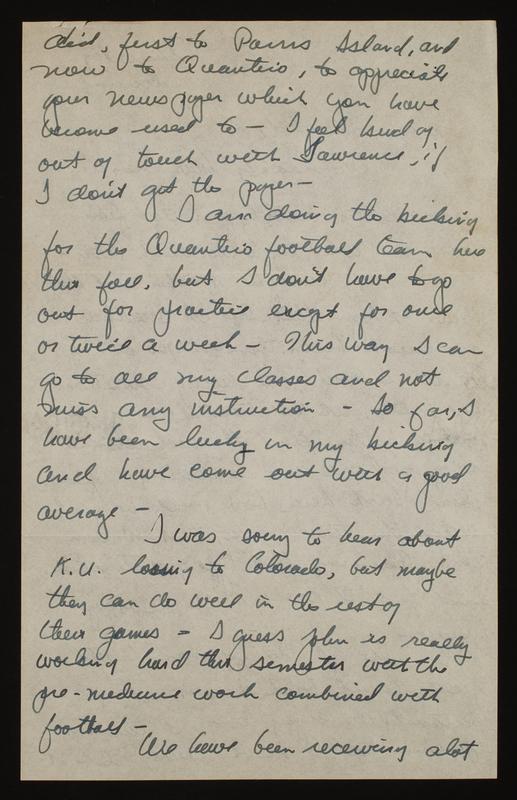 did, first to Parris Island, and
now to Quantico, to appreciate
your newspaper which you have
become used to - I feel kind of
out of touch with Lawrence, if
I don't get the paper-
I am doing the kicking
for the Quantico football team here
this fall, but I don't have to go
out for practice except for once
or twice a week - This way I can
go to all my classes and not
miss any instruction - So far, I
have been lucky in my kicking
and have come out with a good
average -
I was sorry to hear about
K.U. loosing to Colorado, but maybe
they can do well in the rest of
their games - I guess John is really
working hard this semester with the
pre-medicine work combined with
football -
We have been receiving alot